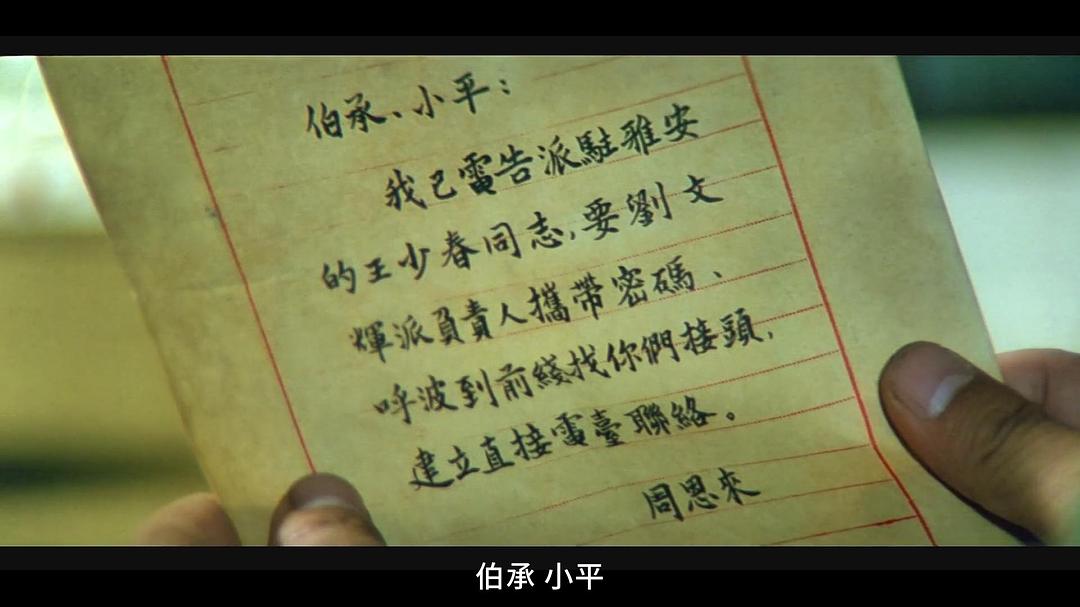 伯承、小平：
我已電告派駐雅安
的王少春同志,要劉文
輝派負責人攜帶密碼、
呼波到前綫找你們接頭,
建立直接電臺聯絡。
周恩來
伯承 小平